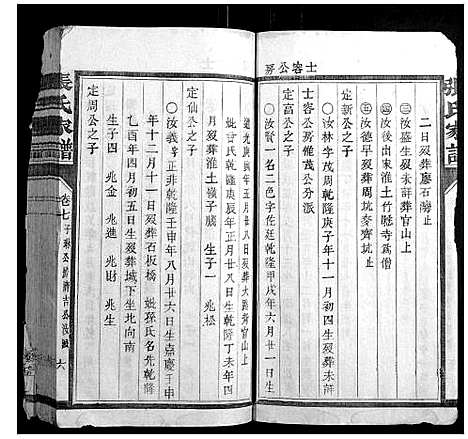 張氏家譜
士容公房
二日歿葬廖石灣止
㊂汝盛生歿未詳葬官山上
㊃汝後出家淮土竹勝寺爲僧
㊄汝德早歿葬周坑麥齊坑止
定新公之子
◎汝林字茂周乾隆庚子年十一月初四生歿葬
士容公房惟茂公分派
定富公之子
◎汝賢一名二色字佐廷乾隆甲戌年六月廿一日
年五月廿八日歿葬大路嶺官山上
妣曾氏乾隆庚辰年正月廿八日生乾隆丁未年四
月歿葬淮土嶺子牆 生子一 兆松
定仙公之子
◎汝義字正非乾隆壬申年八月廿六日生嘉慶壬申
年十二月十一日歿葬石板橋 妣孫氏名先乾隆
乙酉年四月初五日生歿葬城下坐北向南
生子四 兆金 兆進 兆財 兆生
定周公之子
張氏家譜
卷七
六